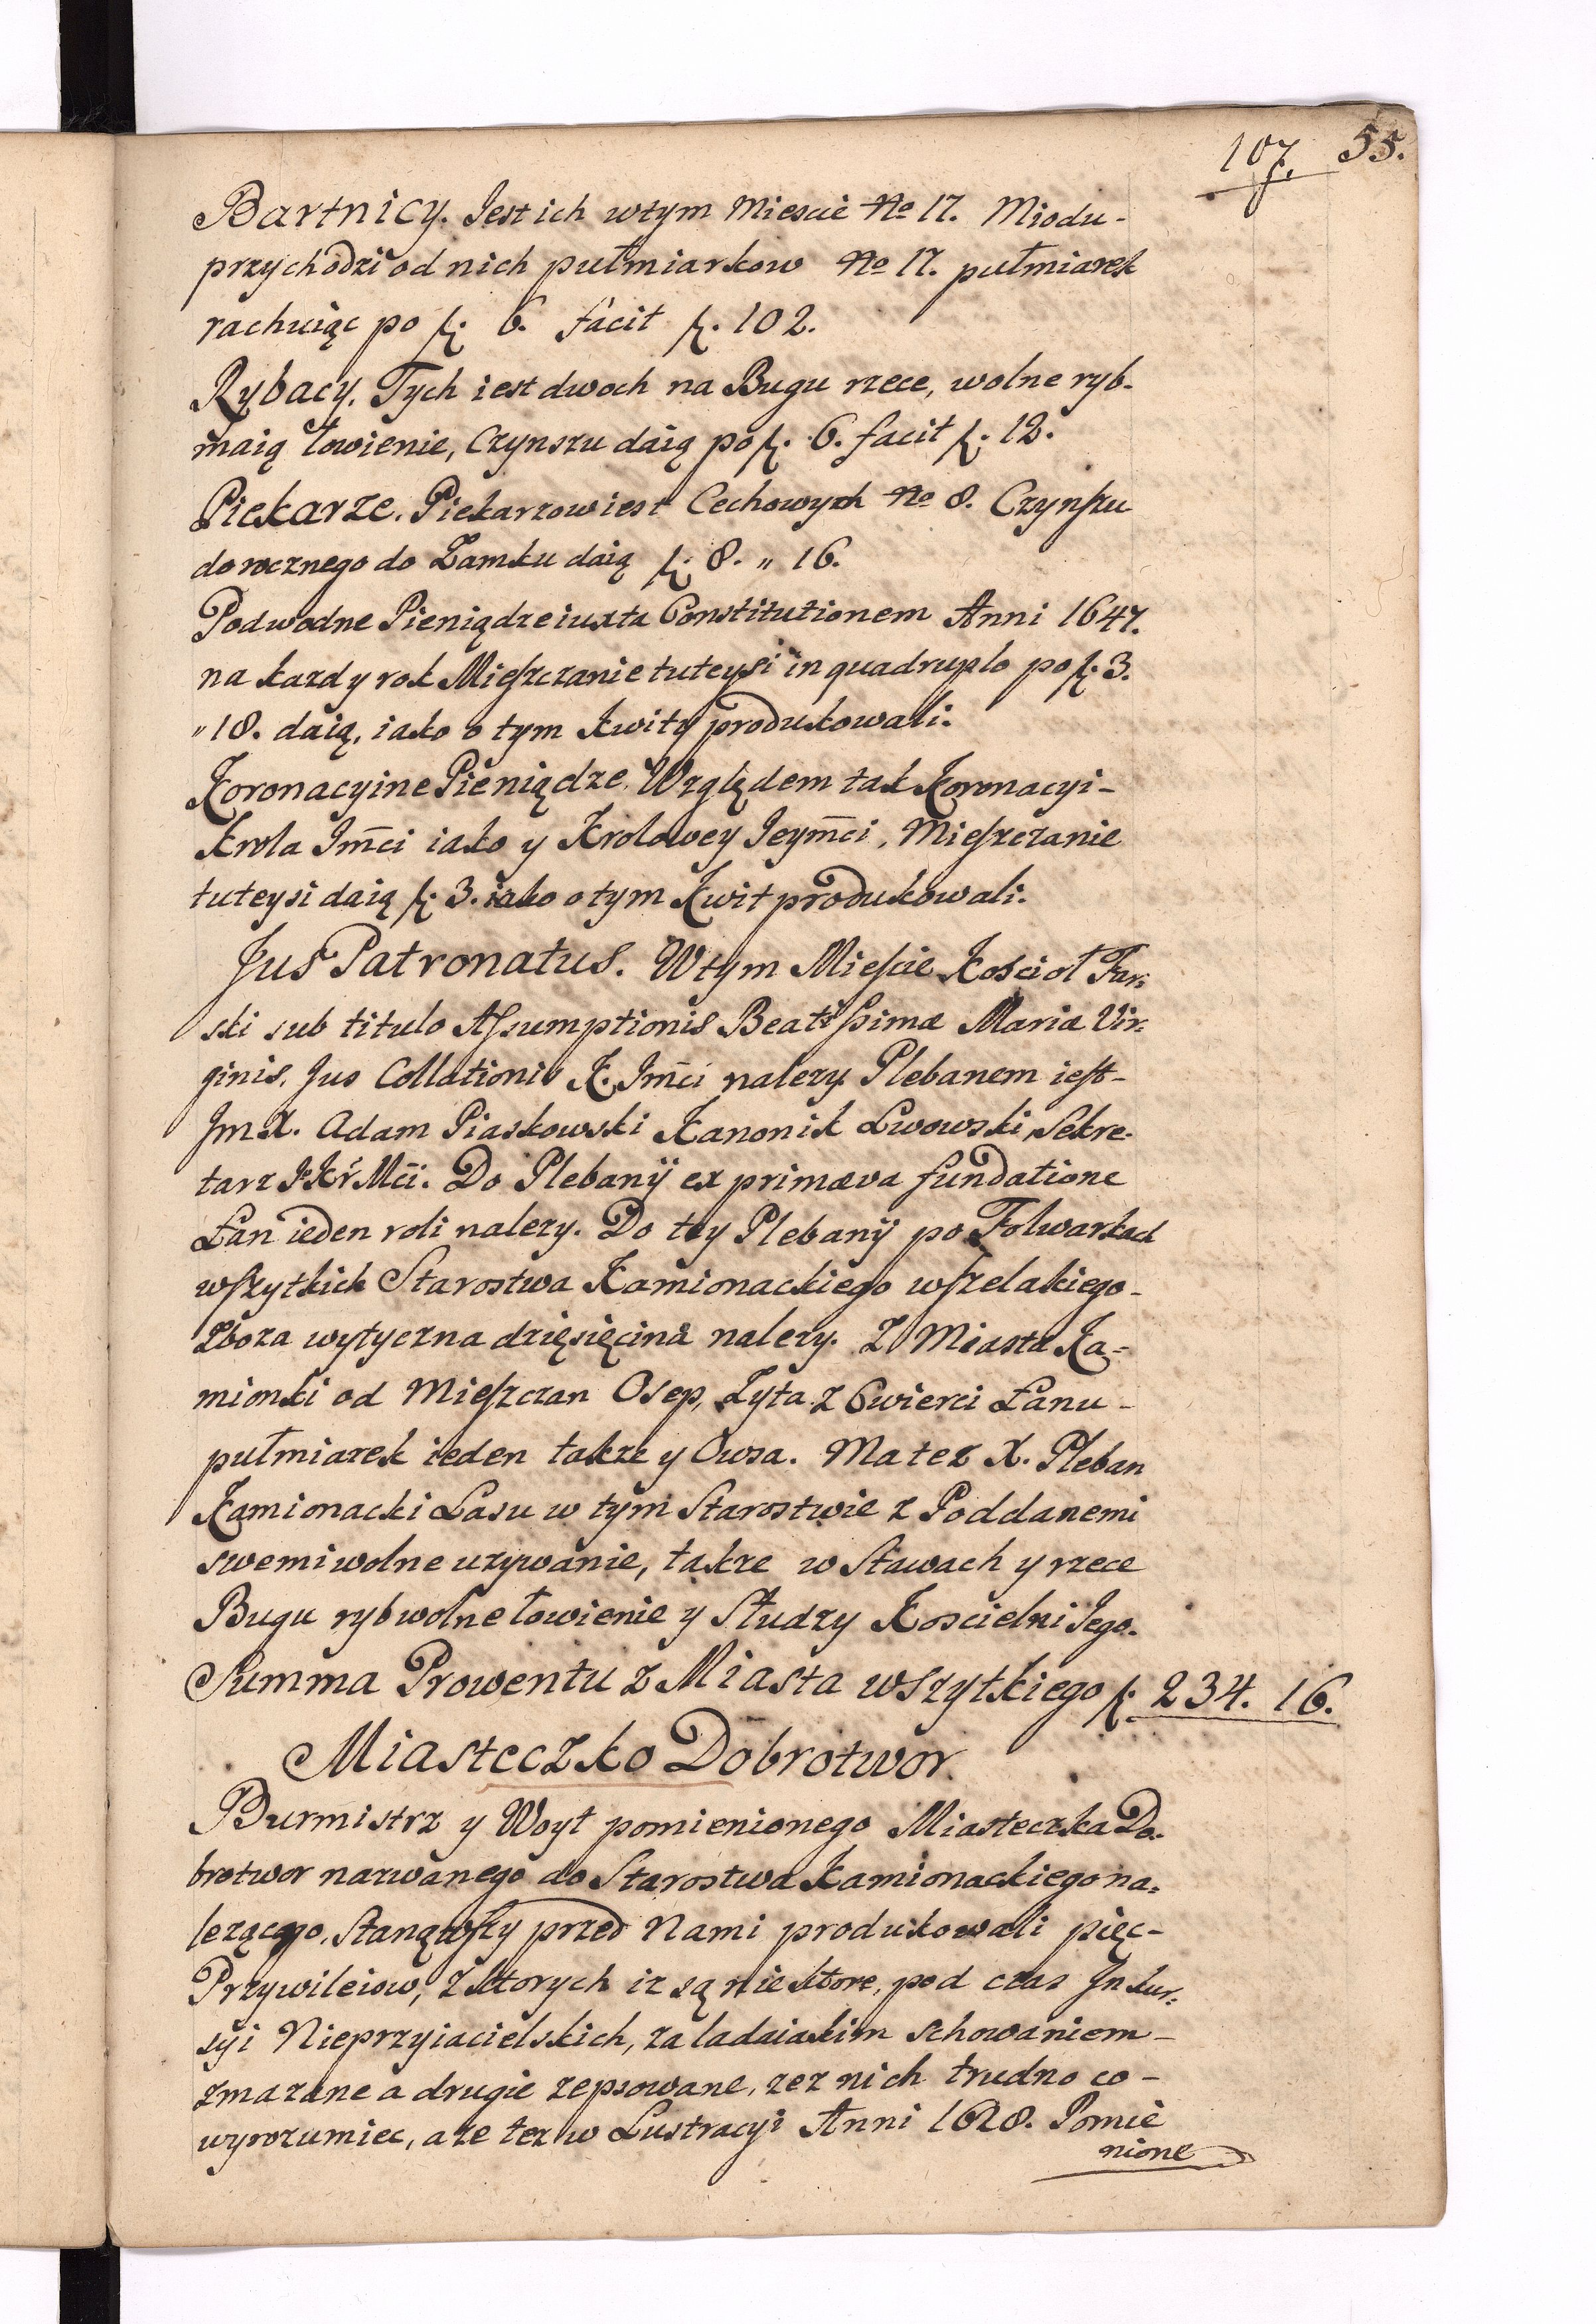 107. 55.
Bartnicy. Jest ich wtym Miescie No 17. Miodu-
przychodzi od nich pułmiarkow No 17. pułmiarek
rachuiąc po f. 6. facit f. 102.
Rybacy. Tych iest dwoch na Bugu rzece, wolne ryb-
maią łowienie, Czynszu daią po f. 6. facit f. 12.
Piekarze. Piekarzow iest Cechowych No 8. Czynszu
dorocznego do Zamku daią f. 8. „ 16.
Podwodne Pieniądze iuxta Constitutionem Anni 1647.
na kazdy rok Mieszczanie tuteysi in quadruplo po f. 3.
„ 18. daią, iako o tym kwity produkowali.
Koronacyine Pieniądze. Względem tak Koronacyi-
Krola Jm̄ci iako y Krolowey Jeym̄ci, Mieszczanie
tuteysi daią f. 3. iako o tym Kwit produkowali.
Jus Patronatus. W tym Miescie Kościoł Far=
ski sub titulo Assumptionis Beatissimæ Mariæ Vir=
ginis, Jus Collationis K. Jm̄ci nalezy. Plebanem iest-
Jm X. Adam Piaskowski Kanonik Lwowski, Sekre-
tarz J. Kr. Mci. Do Plebanÿ ex primæva fundatione
Łan ieden roli nalezy. Do tey Plebanÿ po Folwarkach
wszytkich Starostwa Kamionackiego wszelakiego-
Zboza wytyczna dzięsięcina nalezy. Z Miasta Ka=
mionki od Mieszczan Osep, Zyta z Cwierci Łanu-
pułmiarek ieden takze y Owsa. Ma tez X. Pleban
Kamionacki Lasu w tym Starostwie z Poddanemi
swemi wolne uzywanie, takze w Stawach y rzece
Bugu ryb wolne łowienie y Słudzy Koscielni Jego.
Summa Prowentu z Miasta wszytkiego f. 234. 16.
Miasteczko Dobrotwor.
Burmistrz y Woyt pomienionego Miasteczka Do=
brotwor nazwanego do Starostwa Kamionackiego na=
lezącego, Stanąwszy przed Nami produkowali pięc-
Przywileiow, z ktorych iz są niektore, pod czas Inkur=
syi Nieprzyiacielskich, za ladaiakim schowaniem-
zmazane a drugie zepsowane, ze z nich trudno co-
wyrozumiec, a ze tez w Lustracyi Anni 1628. Pomie
nione